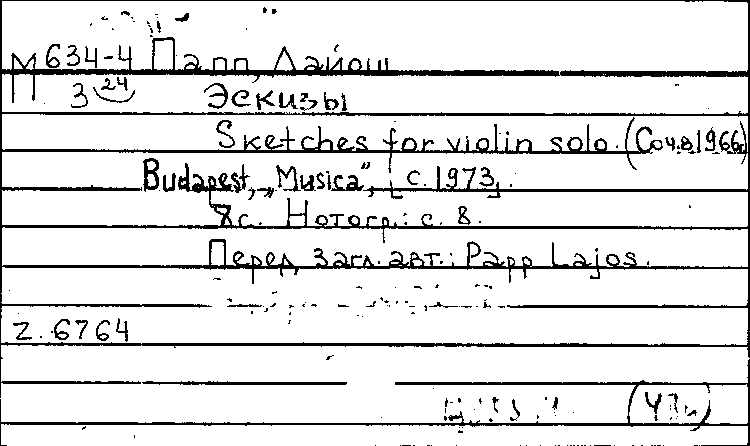 М 634-4 Папп, Лайош
3 24 Эскизы
Sketches for violin solo. (Соч.в 1966г.)
Budapest, „Musica”, [с. 1973].
8с. Нотогр.: с. 8.
Перед загл. авт.: Papp Lajos.
Z. 6764